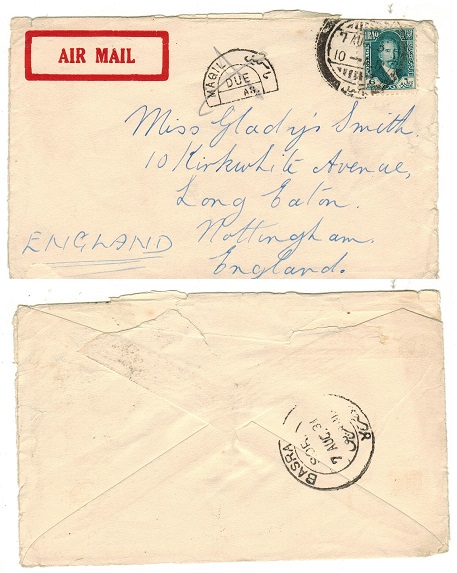 AIR MAIL
MAGIL
DUE
AS.
Miss Gladys Smith.
10 Kirkwhite Avenue,
Long Eaton.
Nottingham.
England.
ENGLAND
BASRA
7 AUG. 31